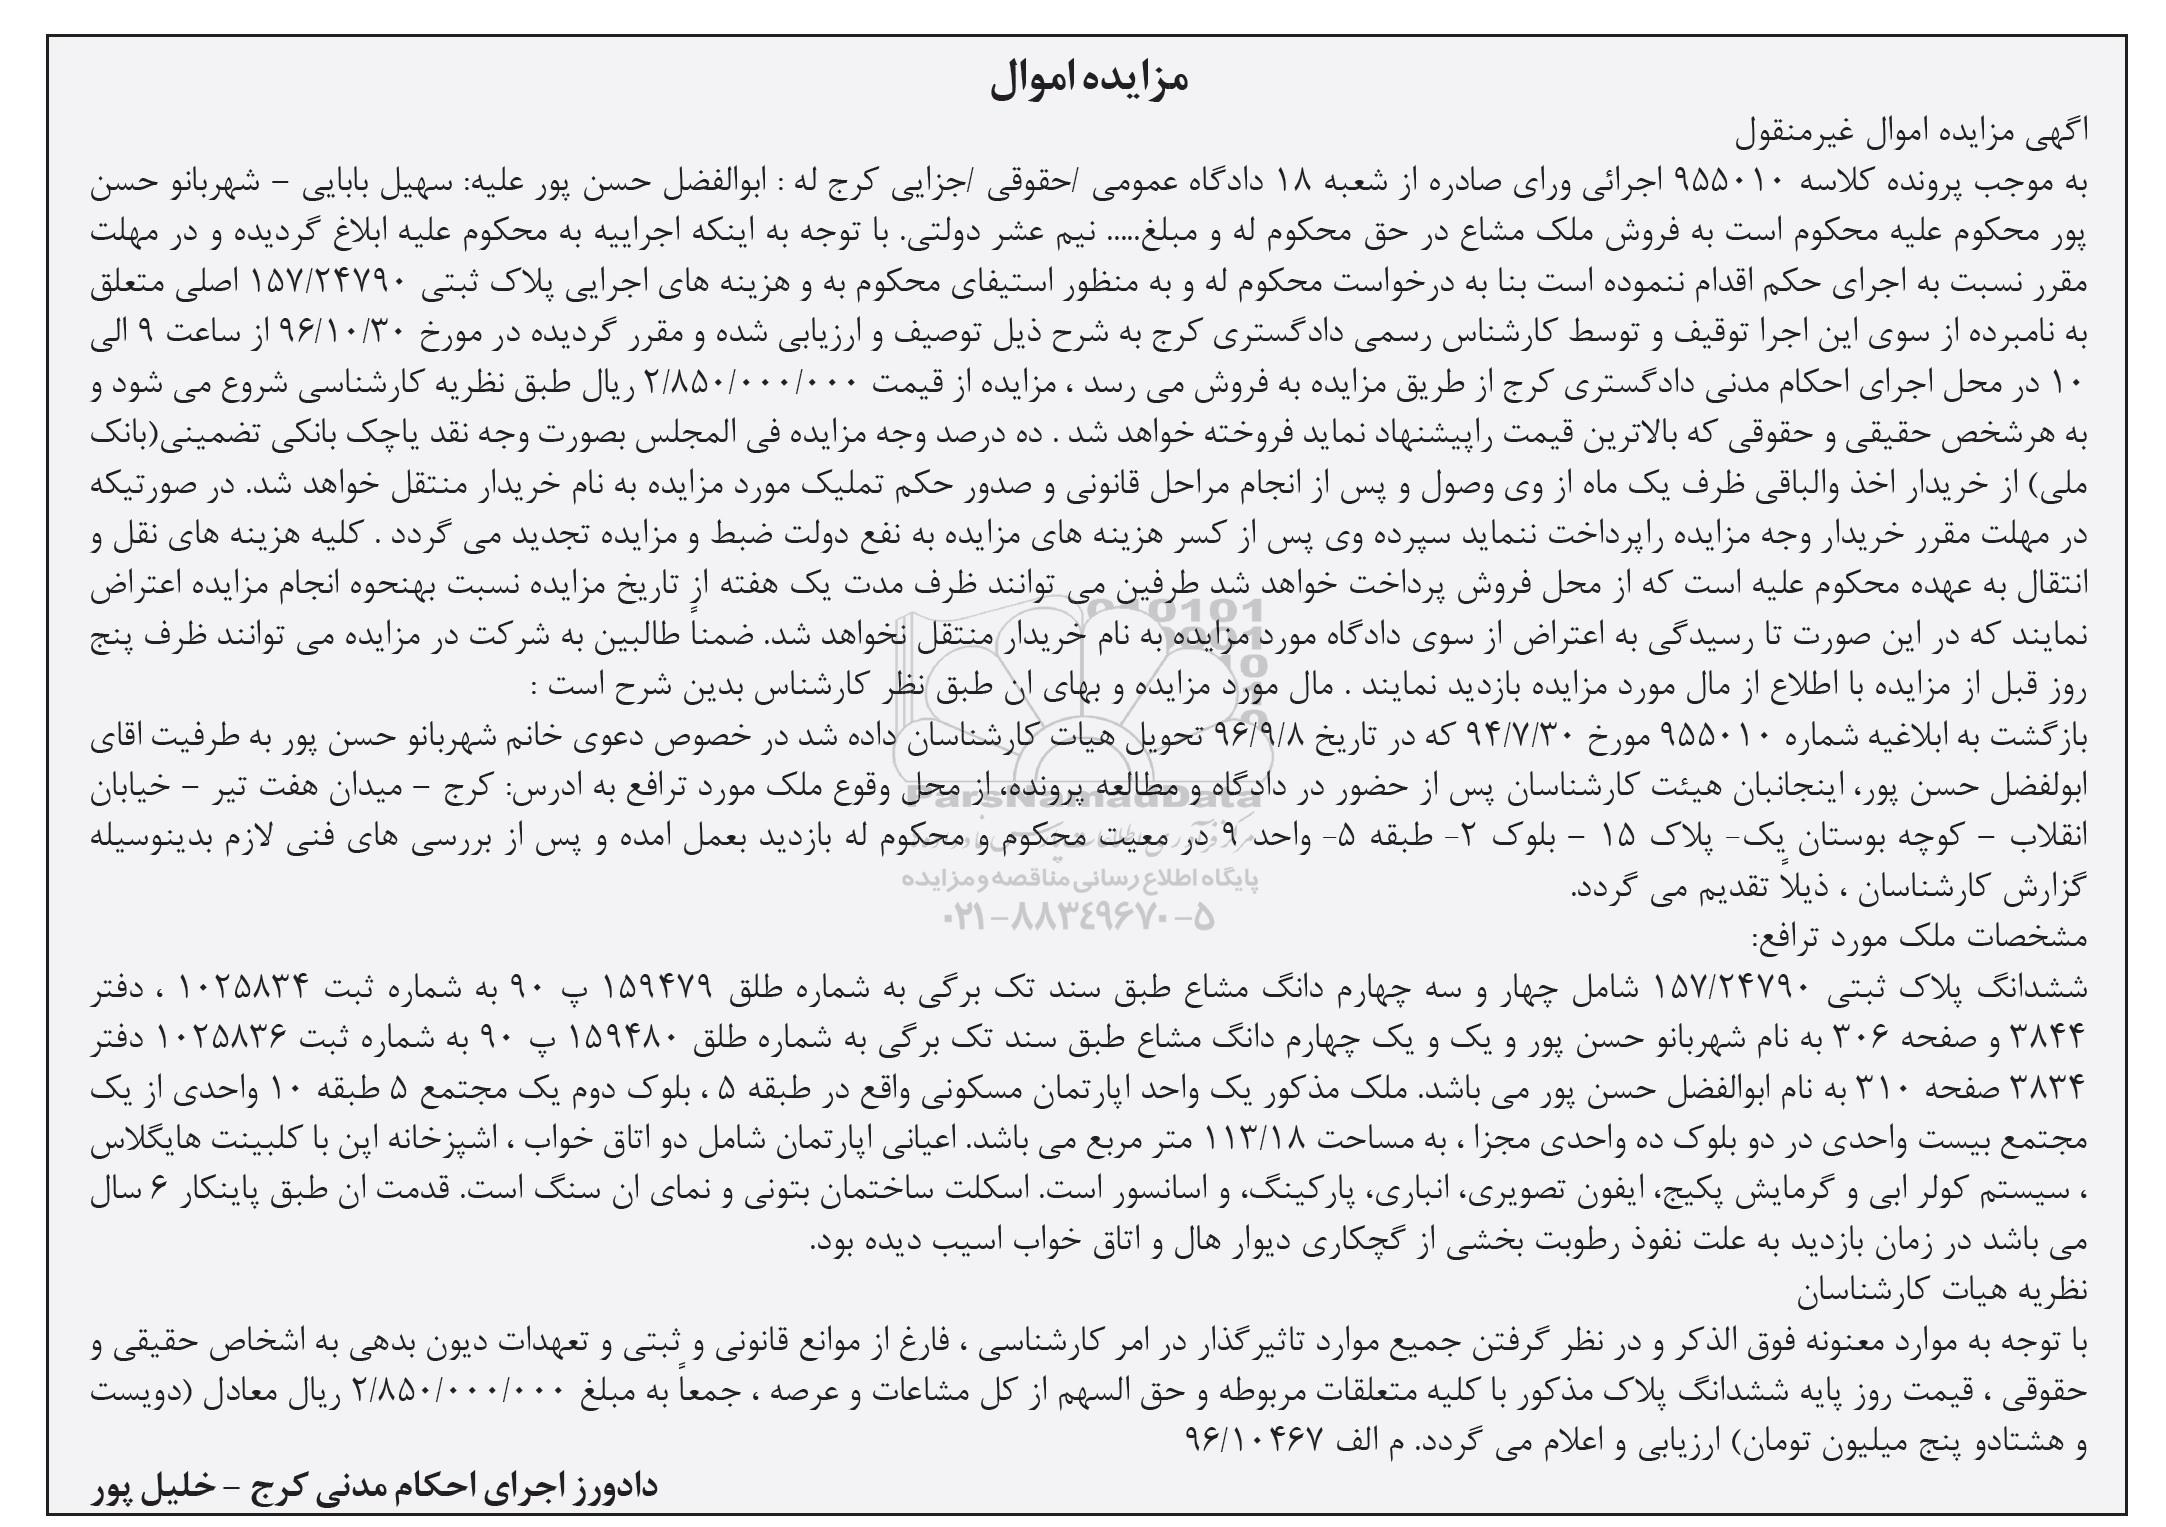 مزایده اموال
اگهی مزایده اموال غیرمنقول
به موجب پرونده کلاسه ۹۵۵۰۱۰ اجرائی ورای صادره از شعبه ۱۸ دادگاه عمومی /حقوقی /جزایی کرج له : ابوالفضل حسن پور علیه: سهیل بابایی – شهربانو حسن
پور محکوم علیه محکوم است به فروش ملک مشاع در حق محکوم له و مبلغ..... نیم عشر دولتی. با توجه به اینکه اجراییه به محکوم علیه ابلاغ گردیده و در مهلت
مقرر نسبت به اجرای حکم اقدام ننموده است بنا به درخواست محکوم له و به منظور استیفای محکوم به و هزینه های اجرایی پلاک ثبتی ۱۵۷/۲۴۷۹۰ اصلی متعلق
به نامبرده از سوی این اجرا توقیف و توسط کارشناس رسمی دادگستری کرج به شرح ذیل توصیف و ارزیابی شده و مقرر گردیده در مورخ ۹۶/۱۰/۳۰ از ساعت ۹ الی
۱۰ در محل اجرای احکام مدنی دادگستری کرج از طریق مزایده به فروش می رسد ، مزایده از قیمت ۲/۸۵۰/۰۰۰/۰۰۰ ریال طبق نظریه کارشناسی شروع می شود و
به هرشخص حقیقی و حقوقی که بالاترین قیمت راپیشنهاد نماید فروخته خواهد شد . ده درصد وجه مزایده فی المجلس بصورت وجه نقد یاچک بانکی تضمینی(بانک
ملی) از خریدار اخذ والباقی ظرف یک ماه از وی وصول و پس از انجام مراحل قانونی و صدور حکم تملیک مورد مزایده به نام خریدار منتقل خواهد شد. در صورتیکه
در مهلت مقرر خریدار وجه مزایده راپرداخت ننماید سپرده وی پس از کسر هزینه های مزایده به نفع دولت ضبط و مزایده تجدید می گردد . کلیه هزینه های نقل و
انتقال به عهده محکوم علیه است که از محل فروش پرداخت خواهد شد طرفین می توانند ظرف مدت یک هفته از تاریخ مزایده نسبت بهنحوه انجام مزایده اعتراض
نمایند که در این صورت تا رسیدگی به اعتراض از سوی دادگاه مورد مزایده به نام خریدار منتقل نخواهد شد. ضمناً طالبین به شرکت در مزایده می توانند ظرف پنج
روز قبل از مزایده با اطلاع از مال مورد مزایده بازدید نمایند . مال مورد مزایده و بهای ان طبق نظر کارشناس بدین شرح است :
بازگشت به ابلاغیه شماره ۹۵۵۰۱۰ مورخ ۹۴/۷/۳۰ که در تاریخ ۹۶/۹/۸ تحویل هیات کارشناسان داده شد در خصوص دعوی خانم شهربانو حسن پور به طرفیت اقای
ابولفضل حسن پور، اینجانبان هیئت کارشناسان پس از حضور در دادگاه و مطالعه پرونده، از محل وقوع ملک مورد ترافع به ادرس: کرج – میدان هفت تیر – خیابان
انقلاب – کوچه بوستان یک- پلاک ۱۵ – بلوک ۲- طبقه ۵- واحد ۹ در معیت محکوم و محکوم له بازدید بعمل امده و پس از بررسی های فنی لازم بدینوسیله
گزارش کارشناسان ، ذیلاً تقدیم می گردد.
مشخصات ملک مورد ترافع:
ششدانگ پلاک ثبتی ۱۵۷/۲۴۷۹۰ شامل چهار و سه چهارم دانگ مشاع طبق سند تک برگی به شماره طلق ۱۵۹۴۷۹ پ ۹۰ به شماره ثبت ۱۰۲۵۸۳۴ ، دفتر
۳۸۴۴ و صفحه ۳۰۶ به نام شهربانو حسن پور و یک و یک چهارم دانگ مشاع طبق سند تک برگی به شماره طلق ۱۵۹۴۸۰ پ ۹۰ به شماره ثبت ۱۰۲۵۸۳۶ دفتر
۳۸۳۴ صفحه ۳۱۰ به نام ابوالفضل حسن پور می باشد. ملک مذکور یک واحد اپارتمان مسکونی واقع در طبقه ۵ ، بلوک دوم یک مجتمع ۵ طبقه ۱۰ واحدی از یک
مجتمع بیست واحدی در دو بلوک ده واحدی مجزا ، به مساحت ۱۱۳/۱۸ متر مربع می باشد. اعیانی اپارتمان شامل دو اتاق خواب ، اشپزخانه اپن با کلبینت هایگلاس
، سیستم کولر ابی و گرمایش پکیج، ایفون تصویری، انباری، پارکینگ، و اسانسور است. اسکلت ساختمان بتونی و نمای ان سنگ است. قدمت ان طبق پاینکار ۶ سال
می باشد در زمان بازدید به علت نفوذ رطوبت بخشی از گچکاری دیوار هال و اتاق خواب اسیب دیده بود.
نظریه هیات کارشناسان
با توجه به موارد معنونه فوق الذکر و در نظر گرفتن جمیع موارد تاثیرگذار در امر کارشناسی ، فارغ از موانع قانونی و ثبتی و تعهدات دیون بدهی به اشخاص حقیقی و
حقوقی ، قیمت روز پایه ششدانگ پلاک مذکور با کلیه متعلقات مربوطه و حق السهم از کل مشاعات و عرصه ، جمعاً به مبلغ ۲/۸۵۰/۰۰۰/۰۰۰ ریال معادل (دویست
و هشتادو پنج میلیون تومان) ارزیابی و اعلام می گردد. م الف ۹۶/۱۰۴۶۷
دادورز اجرای احکام مدنی کرج – خلیل پور
ParsNamadData
پایگاه اطلاع رسانی مناقصه و مزایده
۰۲۱-۸۸۳۴۹۶۷۰-۵